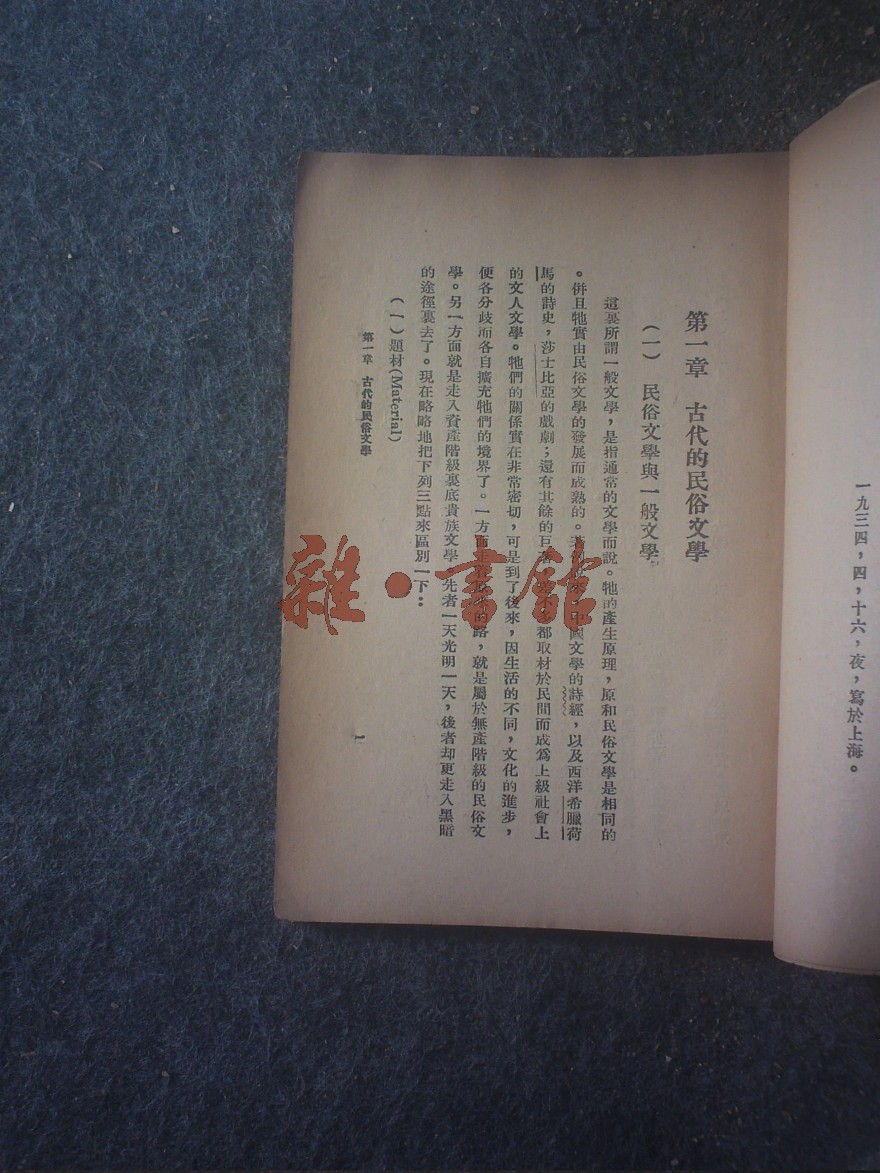 一九三四，四，十六，夜，寫於上海。
第一章　古代的民俗文學
（一）　民俗文學與一般文學
這裏所謂一般文學，是指通常的文學而說。牠的產生原理，原和民俗文學是相同的
。併且牠實由民俗文學的發展而成熟的。中國文學的詩經，以及西洋希臘荷
馬的詩史，莎士比亞的戲劇；還有其餘的巨著，都取材於民間而成爲上級社會上
的文人文學。牠們的關係實在非常密切，可是到了後來，因生活的不同，文化的進步，
便各分歧而各自擴充牠們的境界了。一方面的路，就是屬於無產階級的民俗文
學。另一方面就是走入資產階級裏底貴族文學。先者一天光明一天，後者却更走入黑暗
的途徑裏去了。現在略略地把下列三點來區別一下：
（一）題材(Material)
第一章　古代的民俗文學
1
雜·書館